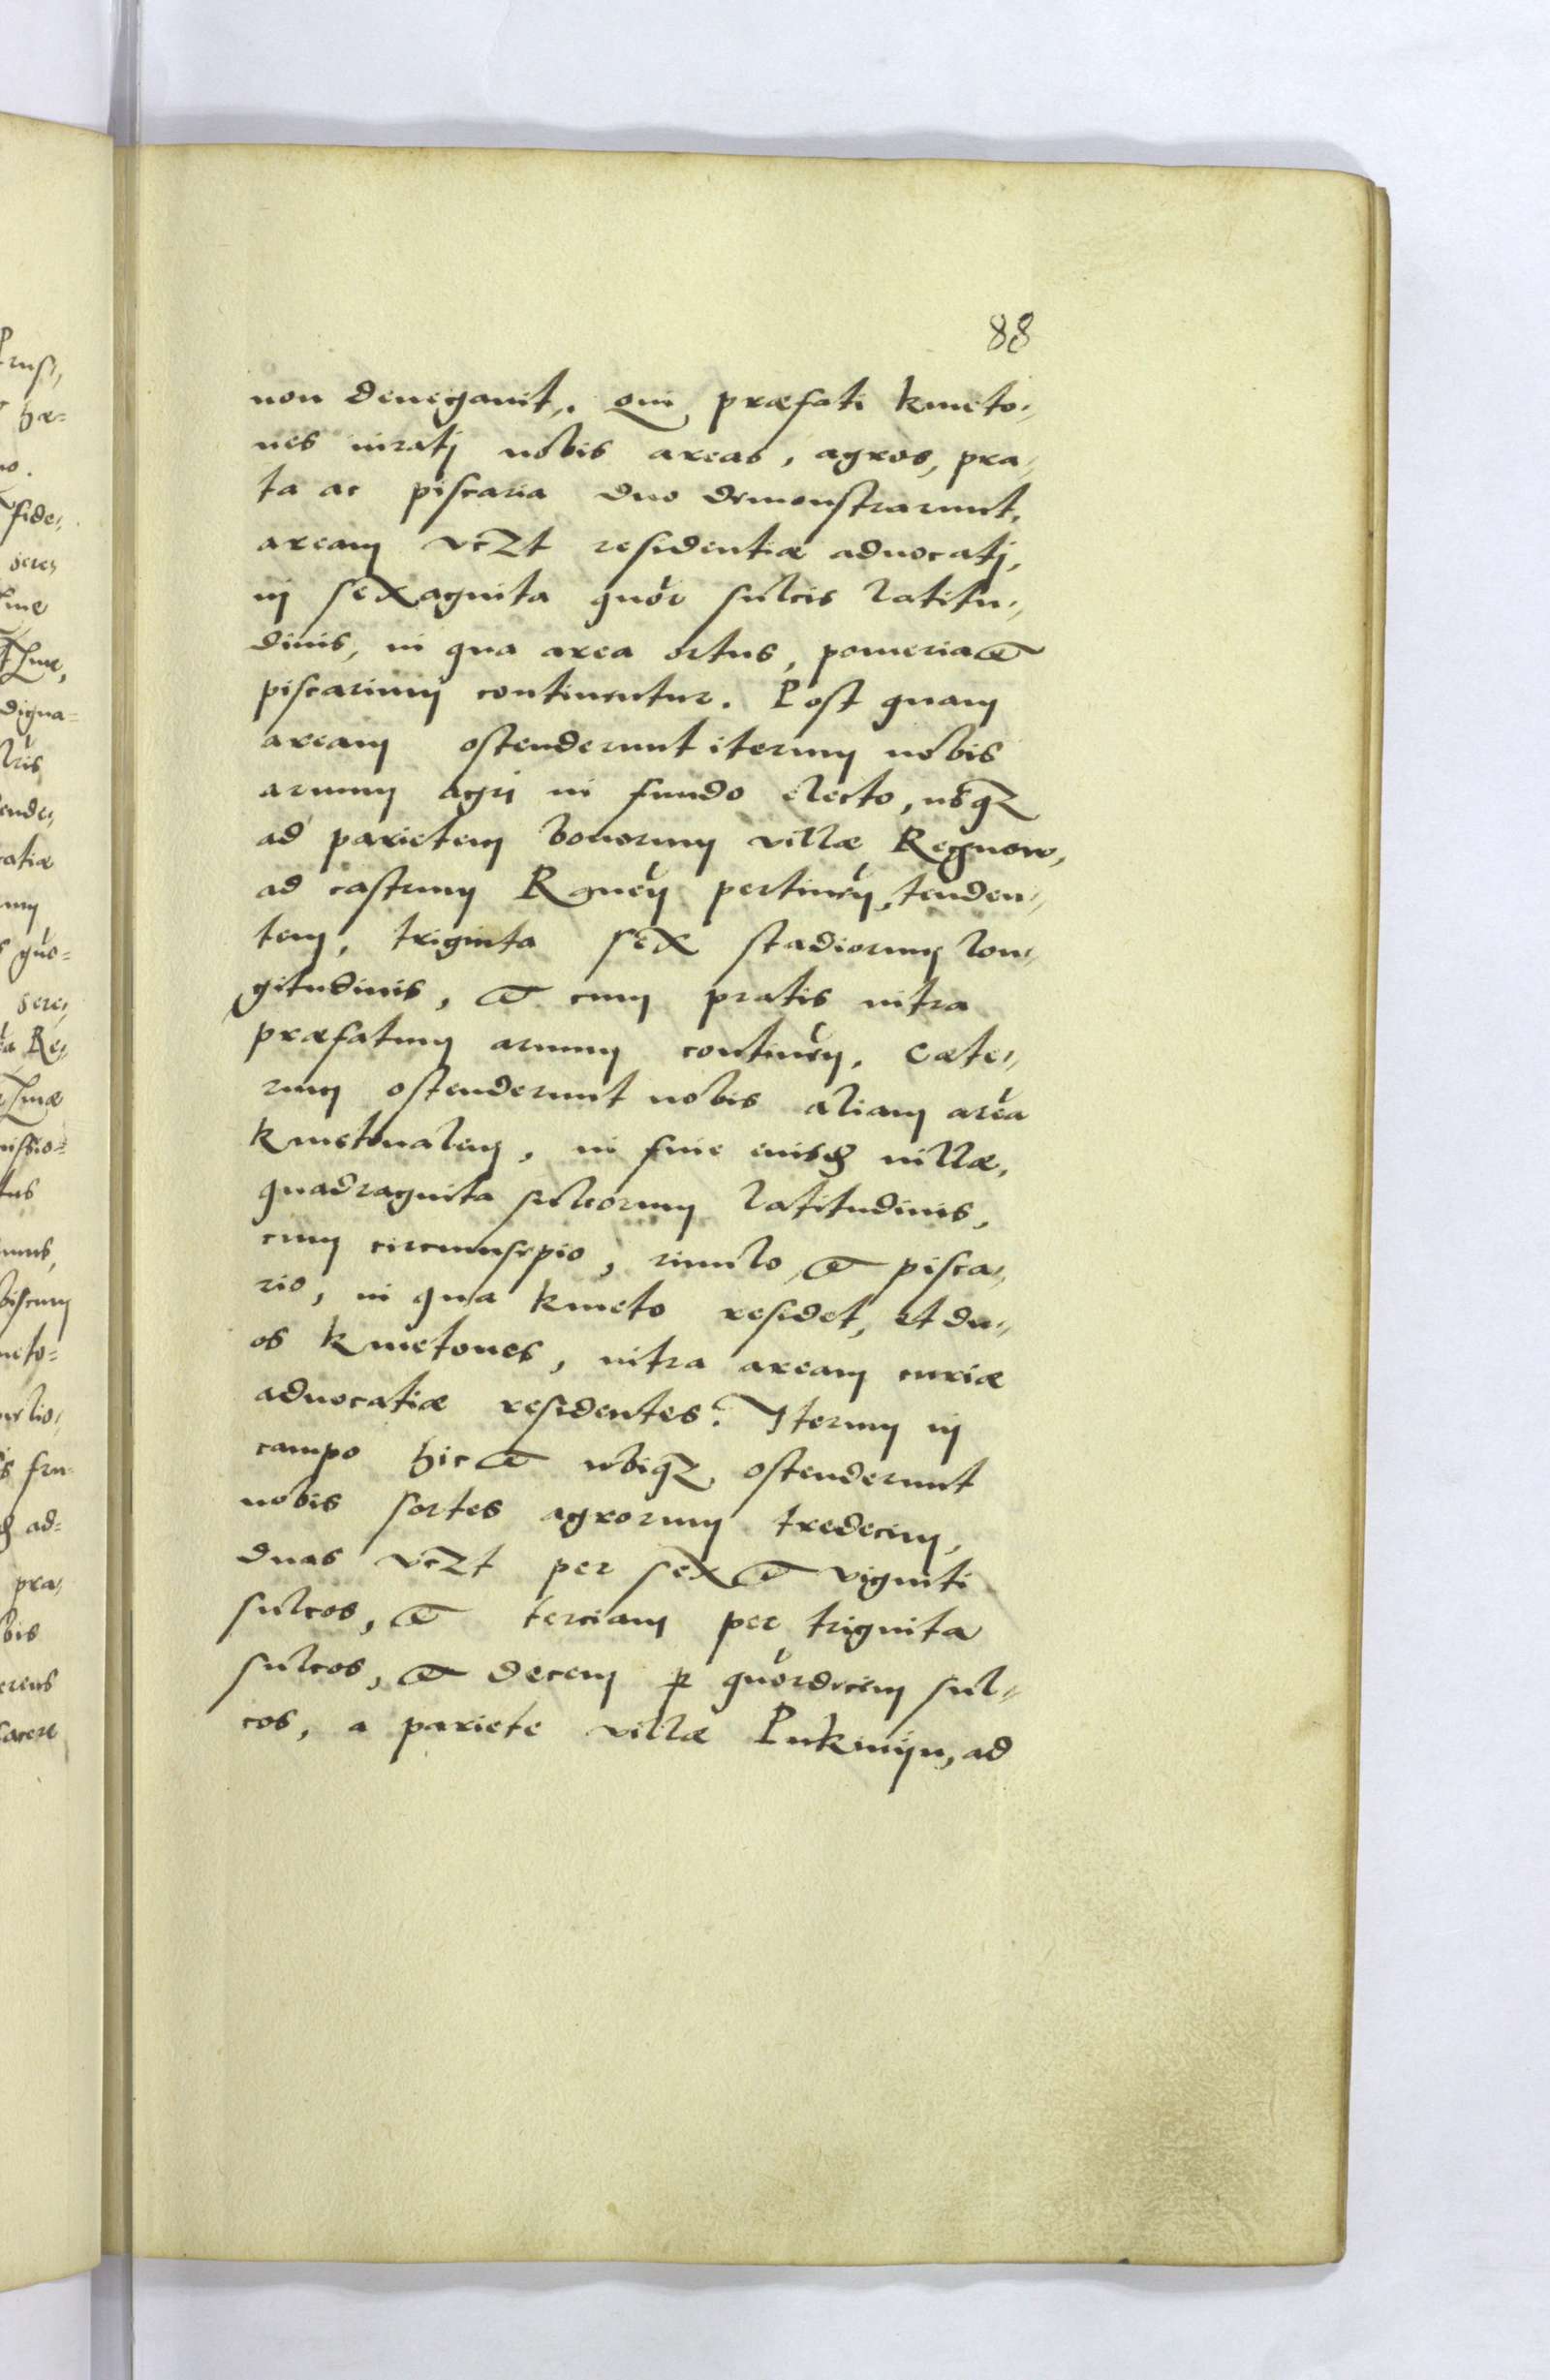 88
non denegauit,. Qui præfati kmeto„
nes iuratj nobis areas, agros, pra„
ta ac piscaria duo demonstrarunt,
aream vczt residentiæ aduocatj,
in sexaginta quor sulcis latitu„
dinis, in qua area ortus, pomeria et
piscarium continentur. Post quam
aream ostenderunt iterum nobis
aruum agri in fundo electo, usq3
ad parietem bonorum villæ Regnow,
ad castrum Rquen pertinen, tenden„
tem, triginta sex stadiorum lon„
gitudinis, et cum pratis intra
præfatum aruum continen. Cæte„
rum ostenderunt nobis aliam area
kmetonalem, in fine eiusd villæ,
quadraginta sulcorum latitudinis,
cum circumsepio, riuulo et pisca„
rio, in qua kmeto residet, et du„
os kmetones, intra aream curiæ
aduocatiæ residentes. Iterum in
campo hic et ubiq3 ostenderunt
nobis sortes agrorum tredecim,
duas vczt per sex et viginti
sulcos, et terciam per triginta
sulcos, et decem p quordecim sul„
cos, a pariete villæ Pukinijn, ad